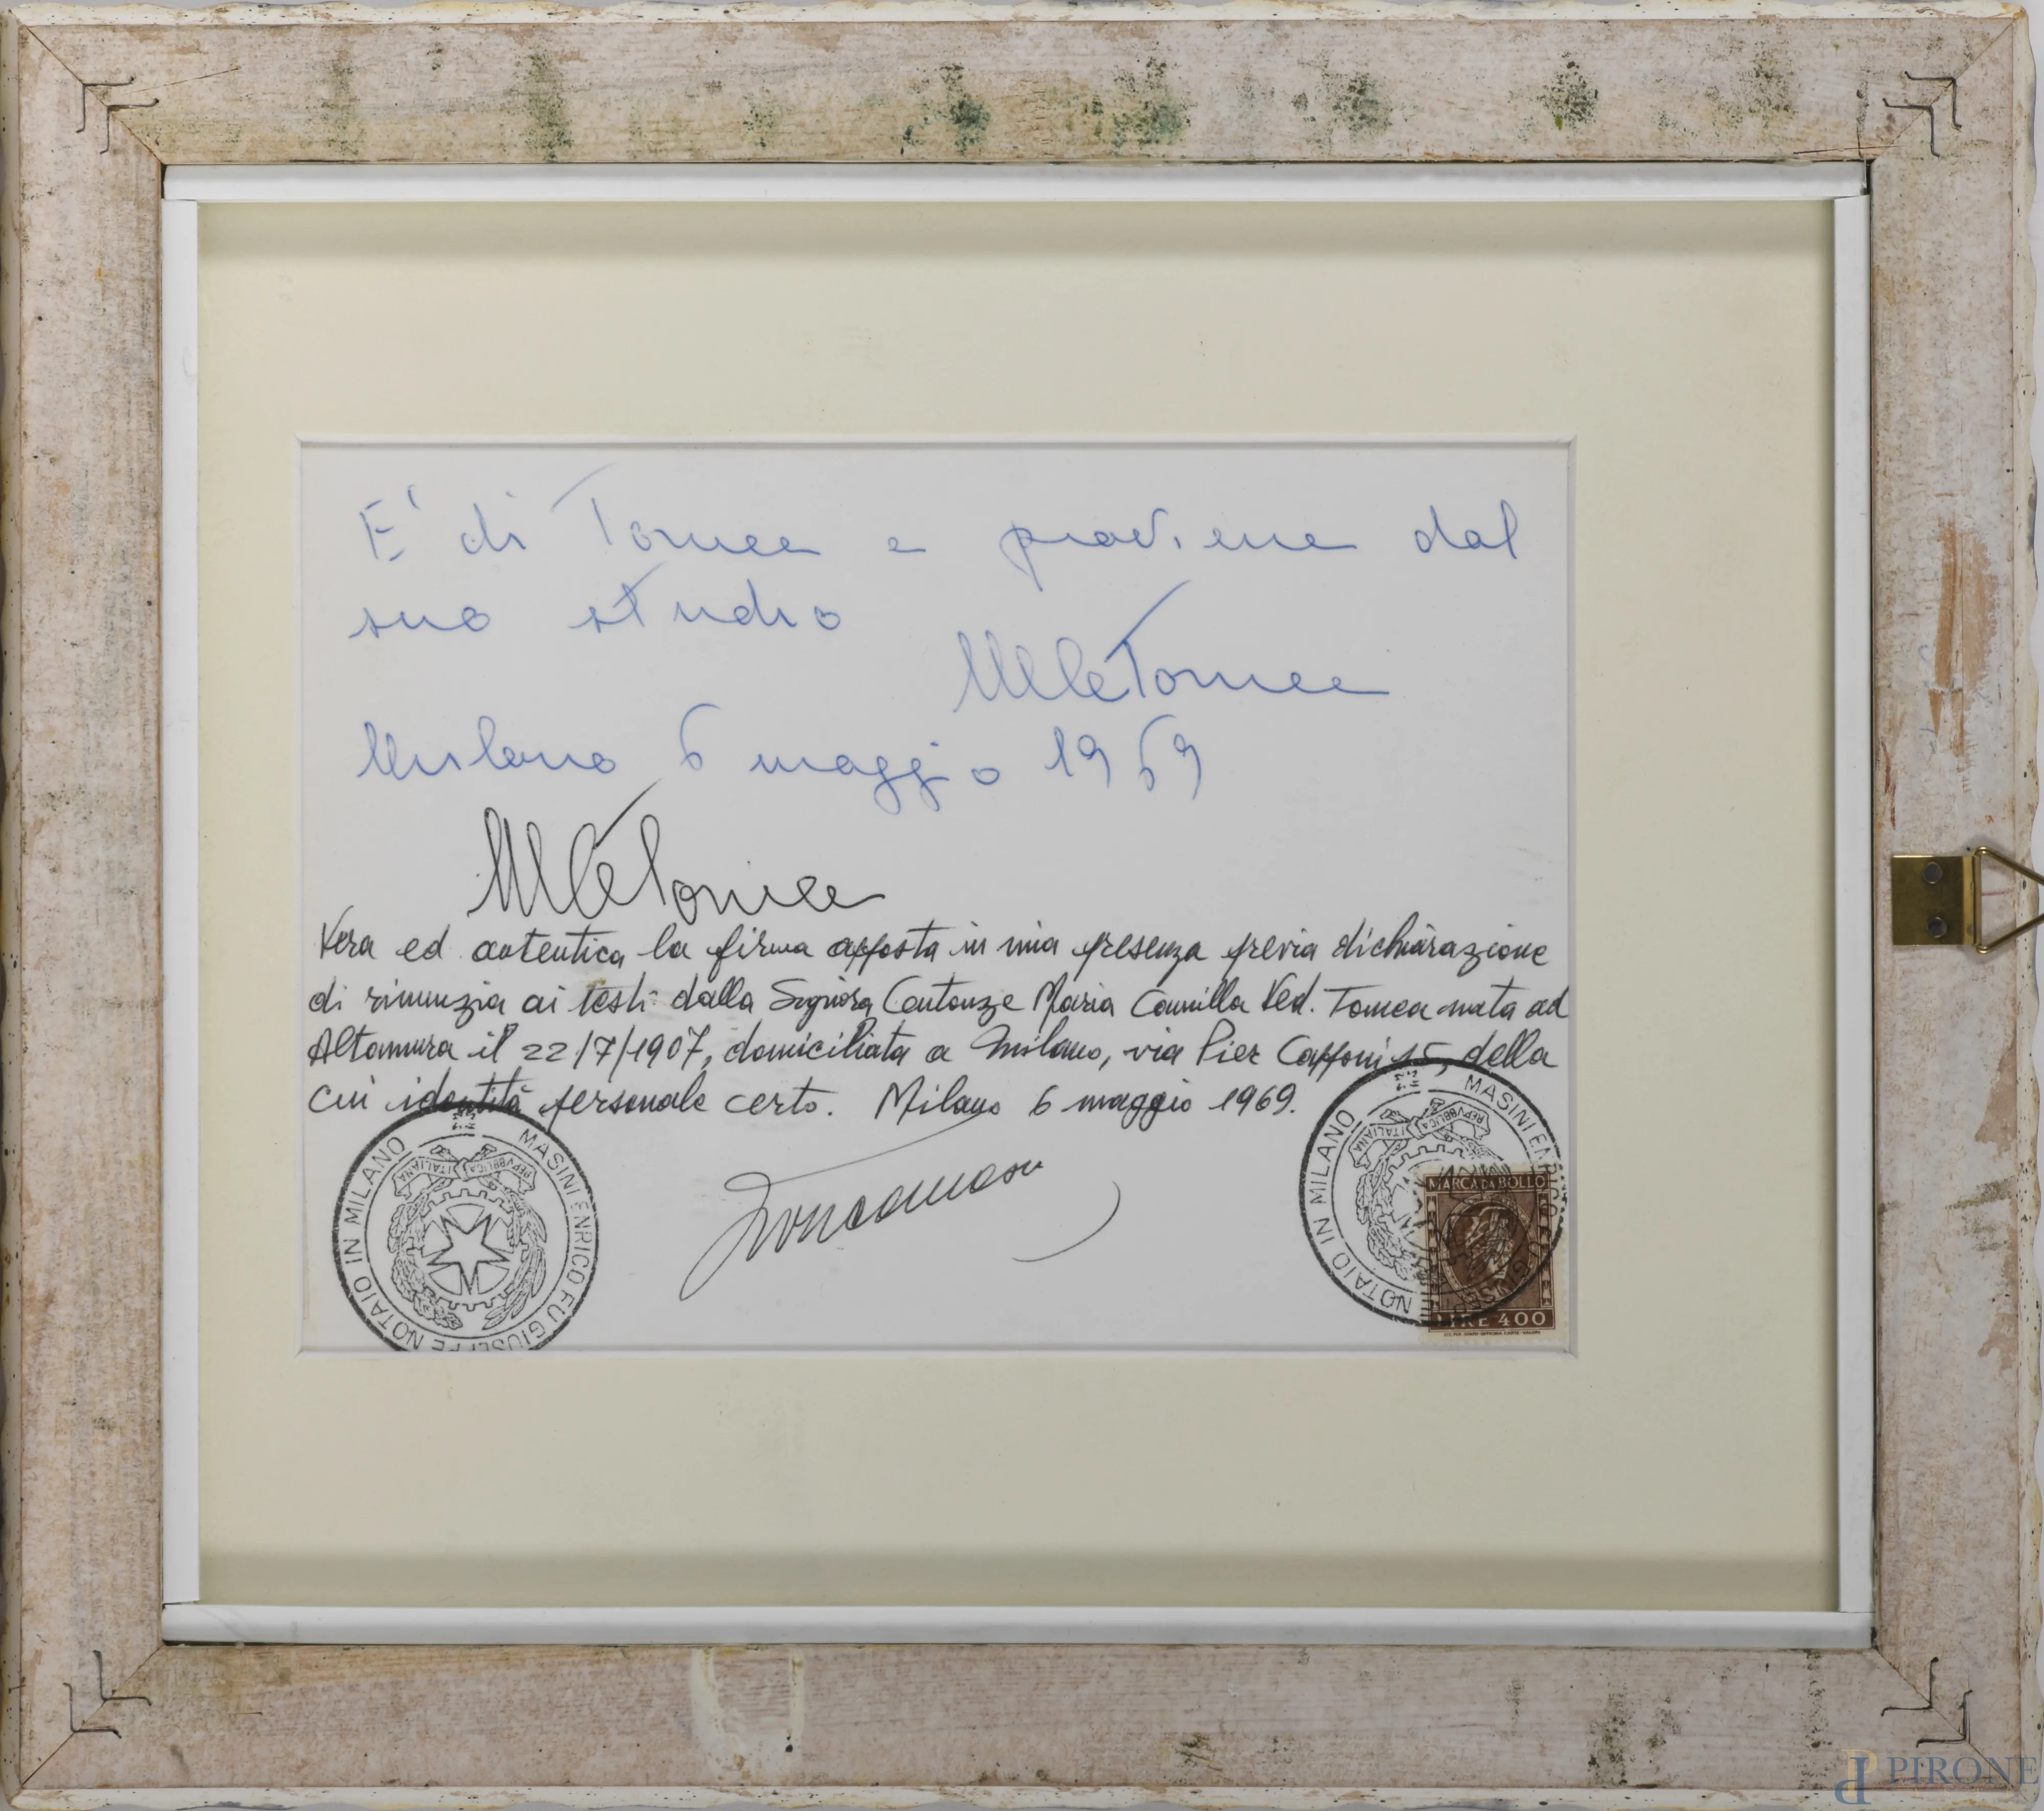 E' di Tomea e proviene dal
suo studio
MCeTomea
Milano 6 maggio 1969
MCeTomea
Vera ed autentica la firma apposta in mia presenza previa dichiarazione
di rinunzia ai testi dalla Signora Centonze Maria Camilla Ved. Tomea nata ad
Altamura il 22/7/1907, domiciliata a Milano, via Pier Capponi 15, della
cui identità personale certo. Milano 6 maggio 1969.
MASINI ENRICO FU GIUSEPPE NOTAIO IN MILANO
REPVBBLICA ITALIANA
MASINI ENRICO FU GIUSEPPE NOTAIO IN MILANO
REPVBBLICA ITALIANA
MARCA DA BOLLO
LIRE 400
PIRONE